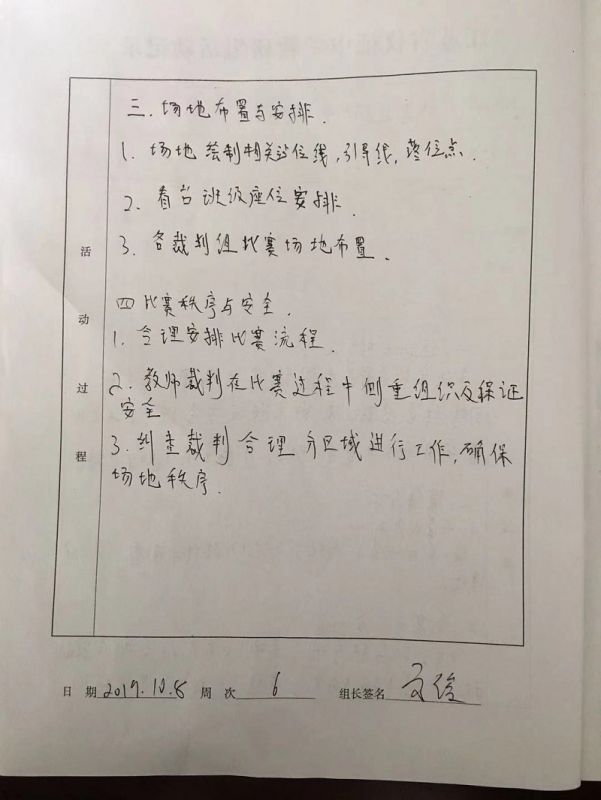 三.场地布置与安排.
1. 场地绘制相关站位线,引导线,落位点.
2. 看台班级座位安排.
3. 各裁判组比赛场地布置.
四 比赛秩序与安全.
1. 合理安排比赛流程.
2. 教师裁判在比赛过程中侧重组织及保证
安全
3. 纠查裁判合理分区域进行工作,确保
场地秩序.
活
动
过
程
日 期 2019.10.8 周 次 6 组长签名